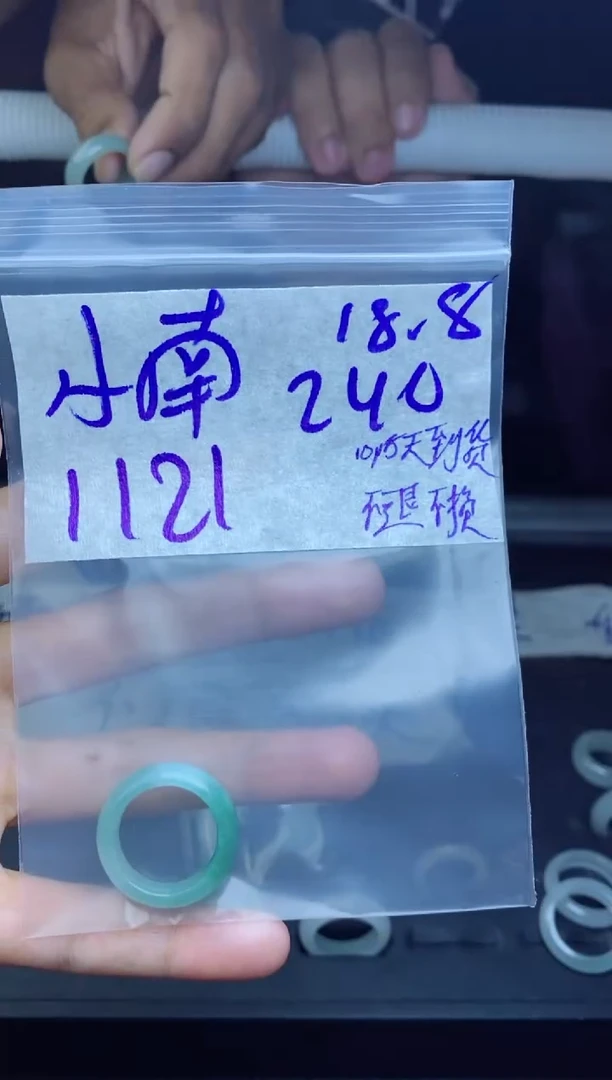 小南 18.8
240
1121 10内5天到货
不退不换